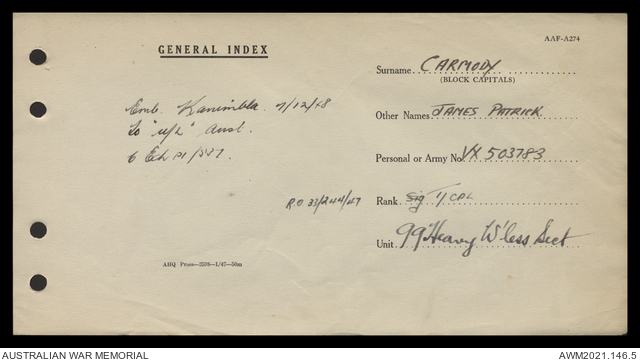 GENERAL INDEX
AAF-A274
Surname CARMODY
(BLOCK CAPITALS)
Other Names JAMES PATRICK
Personal or Army No. VX 503783
Rank Sig T/CPL
Unit 99 Heavy W'less Sect
Emb. Kanimbla 7/12/48
To "u/k" Aust.
R.O 33/244/47
AHQ Press—2598—1/47—50m
AUSTRALIAN WAR MEMORIAL
AWM2021.146.5